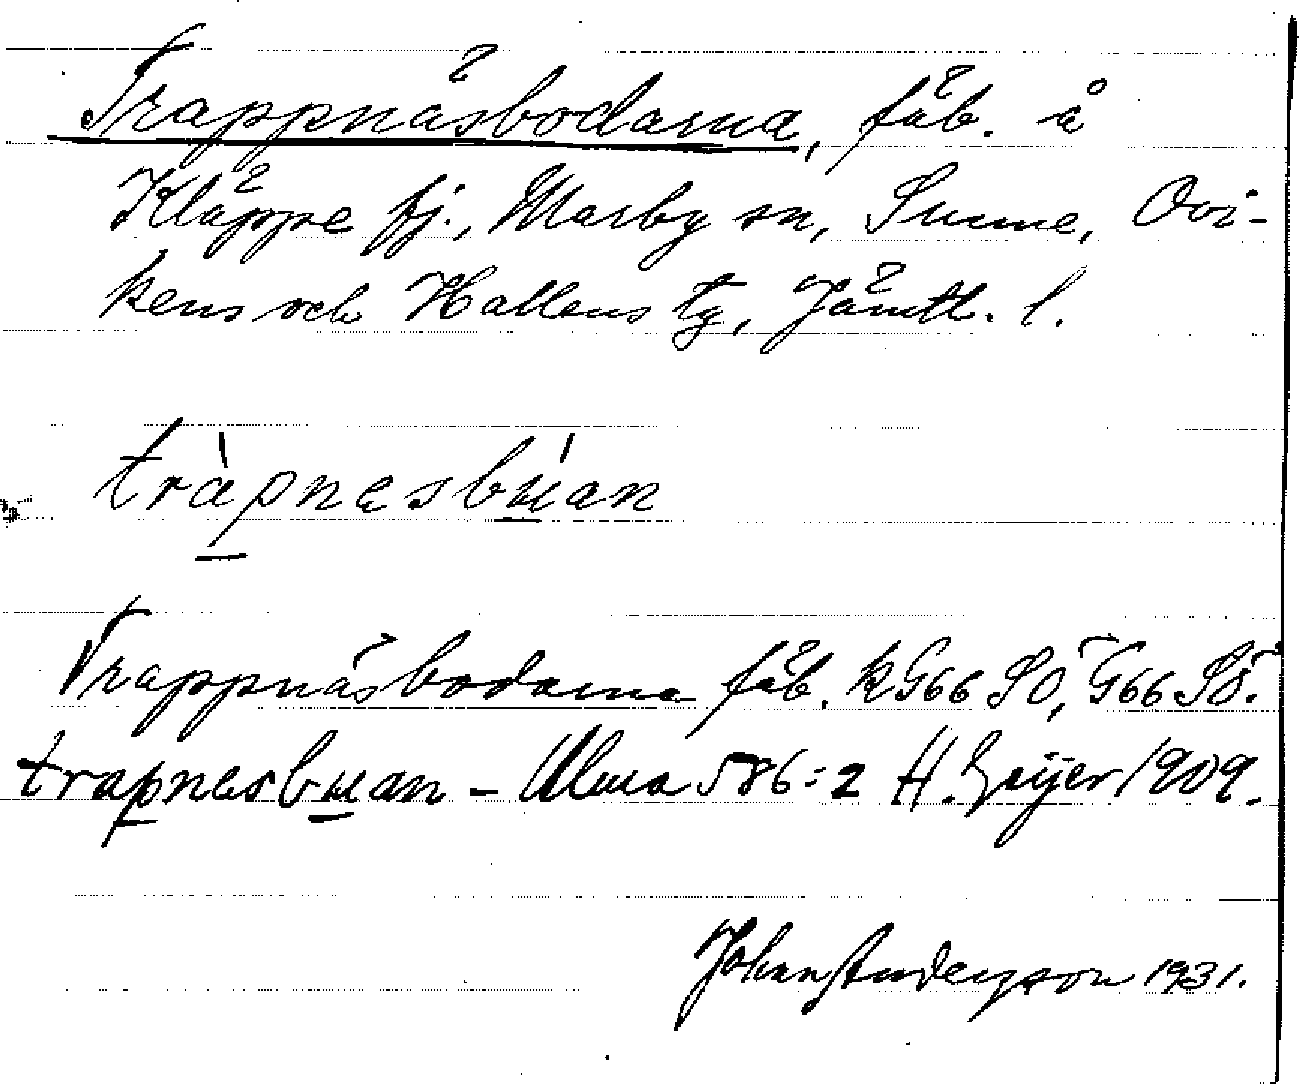 Trappnäsbodarna, fäb. å
Kläppe fj., Marby sn, Sunne, Ovi-
kens och Hallens tg, Jämtl. l.
tràpnesbu̱an
Trappnäsbodarna fäb. k G66 SO, G66 SÖ.
trapnesbu̱an - Ulma 586:2 H. Geijer 1909.
Johan Anderzson 1931.